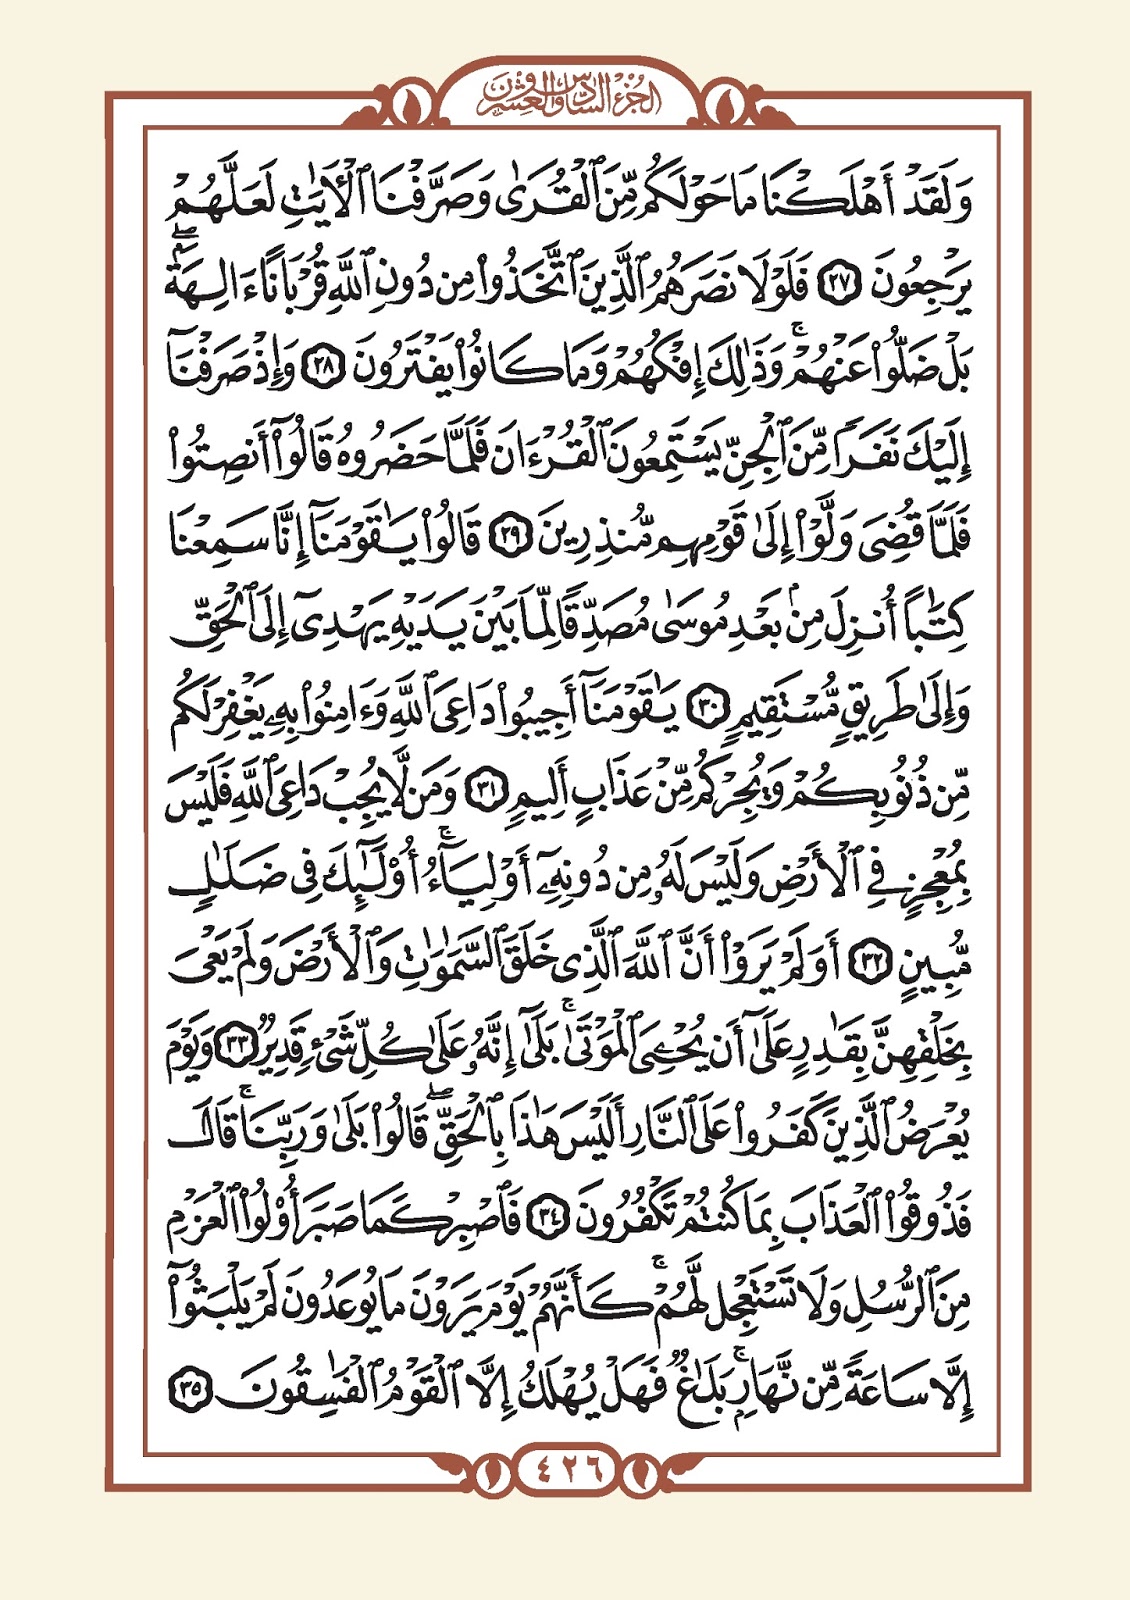 الجزء السادس والعشرون
وَلَقَدْ أَهْلَكْنَا مَا حَوْلَكُم مِّنَ ٱلْقُرَىٰ وَصَرَّفْنَا ٱلْأَيَٰتِ لَعَلَّهُمْ
يَرْجِعُونَ ٢٧ فَلَوْلَا نَصَرَهُمُ ٱلَّذِينَ ٱتَّخَذُوا۟ مِن دُونِ ٱللَّهِ قُرْبَانًا ءَالِهَةًۖ
بَلْ ضَلُّوا۟ عَنْهُمْۚ وَذَٰلِكَ إِفْكُهُمْ وَمَا كَانُوا۟ يَفْتَرُونَ ٢٨ وَإِذْ صَرَفْنَآ
إِلَيْكَ نَفَرًا مِّنَ ٱلْجِنِّ يَسْتَمِعُونَ ٱلْقُرْءَانَ فَلَمَّا حَضَرُوهُ قَالُوٓا۟ أَنصِتُوا۟
فَلَمَّا قُضِىَ وَلَّوْا۟ إِلَىٰ قَوْمِهِم مُّنذِرِينَ ٢٩ قَالُوا۟ يَٰقَوْمَنَآ إِنَّا سَمِعْنَا
كِتَٰبًا أُنزِلَ مِنۢ بَعْدِ مُوسَىٰ مُصَدِّقًا لِّمَا بَيْنَ يَدَيْهِ يَهْدِىٓ إِلَى ٱلْحَقِّ
وَإِلَىٰ طَرِيقٍ مُّسْتَقِيمٍ ٣٠ يَٰقَوْمَنَآ أَجِيبُوا۟ دَاعِىَ ٱللَّهِ وَءَامِنُوا۟ بِهِۦ يَغْفِرْ لَكُم
مِّن ذُنُوبِكُمْ وَيُجِرْكُم مِّنْ عَذَابٍ أَلِيمٍ ٣١ وَمَن لَّا يُجِبْ دَاعِىَ ٱللَّهِ فَلَيْسَ
بِمُعْجِزٍ فِى ٱلْأَرْضِ وَلَيْسَ لَهُۥ مِن دُونِهِۦٓ أَوْلِيَآءُۚ أُو۟لَٰٓئِكَ فِى ضَلَٰلٍ
مُّبِينٍ ٣٢ أَوَلَمْ يَرَوْا۟ أَنَّ ٱللَّهَ ٱلَّذِى خَلَقَ ٱلسَّمَٰوَٰتِ وَٱلْأَرْضَ وَلَمْ يَعْىَ
بِخَلْقِهِنَّ بِقَٰدِرٍ عَلَىٰٓ أَن يُحْـِۧىَ ٱلْمَوْتَىٰۚ بَلَىٰٓ إِنَّهُۥ عَلَىٰ كُلِّ شَىْءٍ قَدِيرٌ ٣٣ وَيَوْمَ
يُعْرَضُ ٱلَّذِينَ كَفَرُوا۟ عَلَى ٱلنَّارِ أَلَيْسَ هَٰذَا بِٱلْحَقِّۖ قَالُوا۟ بَلَىٰ وَرَبِّنَاۚ قَالَ
فَذُوقُوا۟ ٱلْعَذَابَ بِمَا كُنتُمْ تَكْفُرُونَ ٣٤ فَٱصْبِرْ كَمَا صَبَرَ أُو۟لُوا۟ ٱلْعَزْمِ
مِنَ ٱلرُّسُلِ وَلَا تَسْتَعْجِل لَّهُمْۚ كَأَنَّهُمْ يَوْمَ يَرَوْنَ مَا يُوعَدُونَ لَمْ يَلْبَثُوٓا۟
إِلَّا سَاعَةً مِّن نَّهَارٍۭۚ بَلَٰغٌ فَهَلْ يُهْلَكُ إِلَّا ٱلْقَوْمُ ٱلْفَٰسِقُونَ ٣٥
٤٢٦